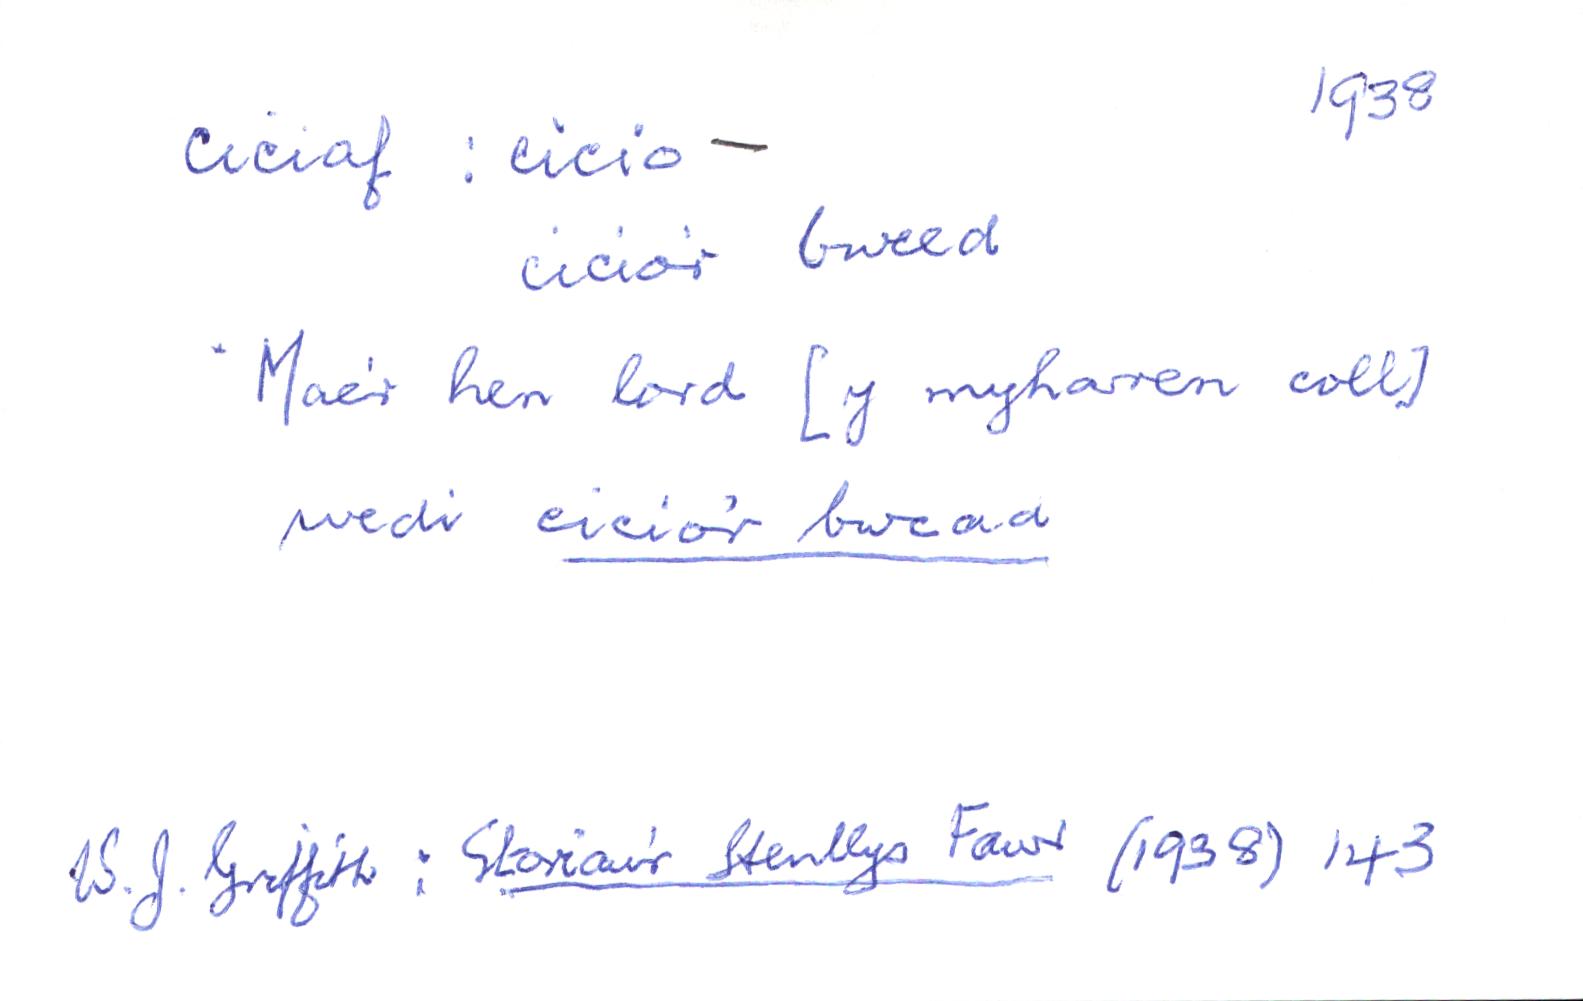 1938
ciciaf : cicio —
cicio'r bwced
"Mae'r hen lord [y myharen coll]
wedi cicio'r bwcad
W. J. Griffith : Storïau'r Henllys Fawr (1938) 143